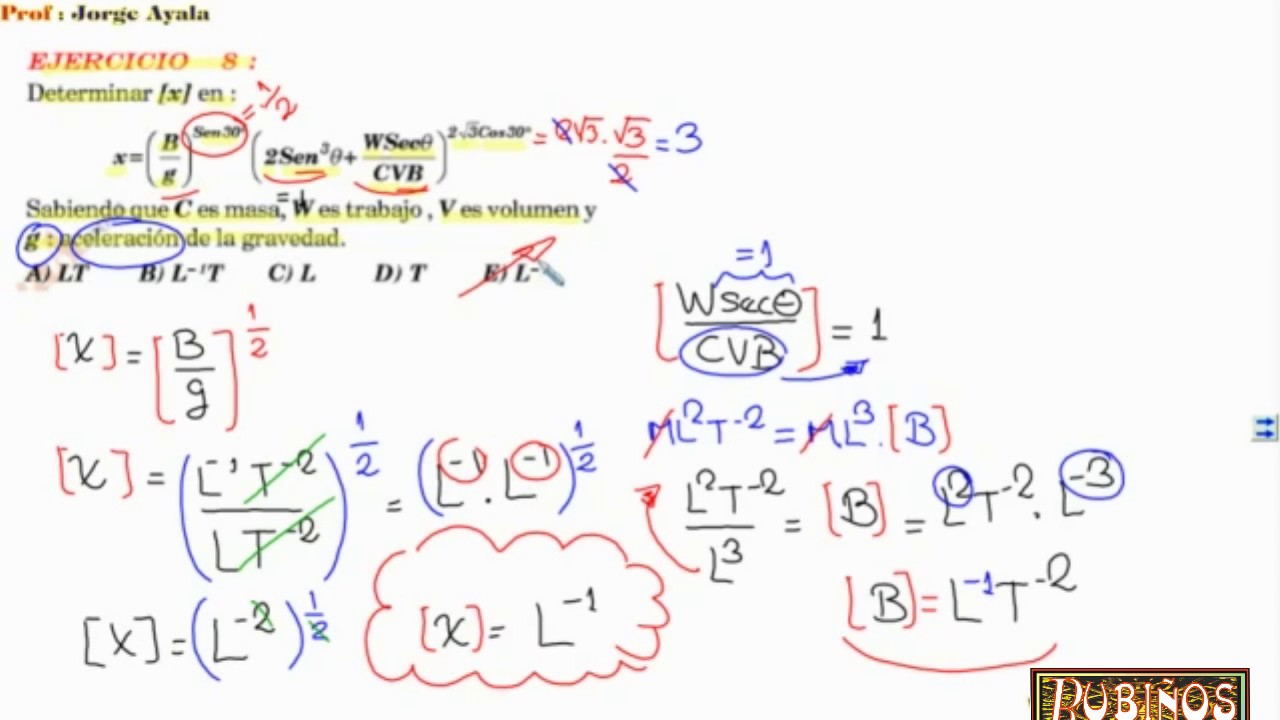 Prof : Jorge Ayala
EJERCICIO 8 :
Determinar [x] en :
x = (B/g)^Sen30° (2Sen³θ + WSecθ/CVB)^2√3Cos30° = 2√3 . √3/2 = 3
= 1/2
= 1
Sabiendo que C es masa, W es trabajo , V es volumen y
g : aceleración de la gravedad.
A) LT B) L⁻¹T C) L D) T E) L⁻
[X] = [B/g]^1/2
[X] = (L⁻¹T⁻²/LT⁻²)^1/2 = (L⁻¹ . L⁻¹)^1/2
[X] = (L⁻²)^1/2
[X] = L⁻¹
= 1
[WSecθ/CVB] = 1
ML²T⁻² = ML³ . [B]
L²T⁻²/L³ = [B] = L²T⁻² . L⁻³
[B] = L⁻¹T⁻²
RUBIÑOS